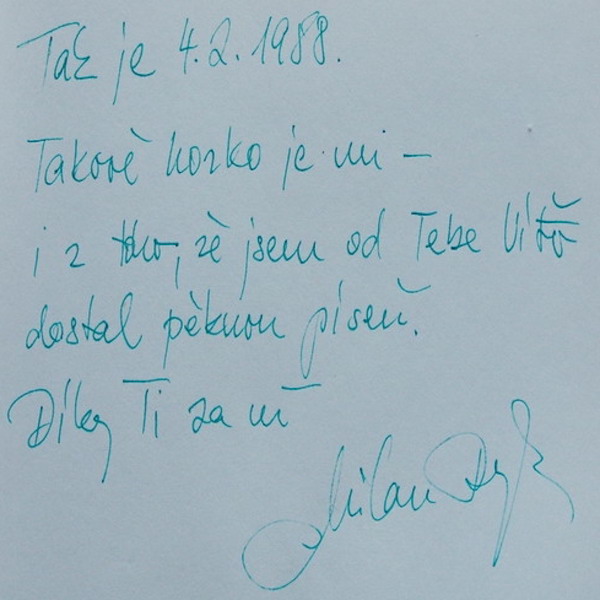 Tak je 4.2.1988.
Takové horko je mi –
i z toho, že jsem od Tebe Víťo
dostal pěknou píseň.
Díky Ti za ni
Milan